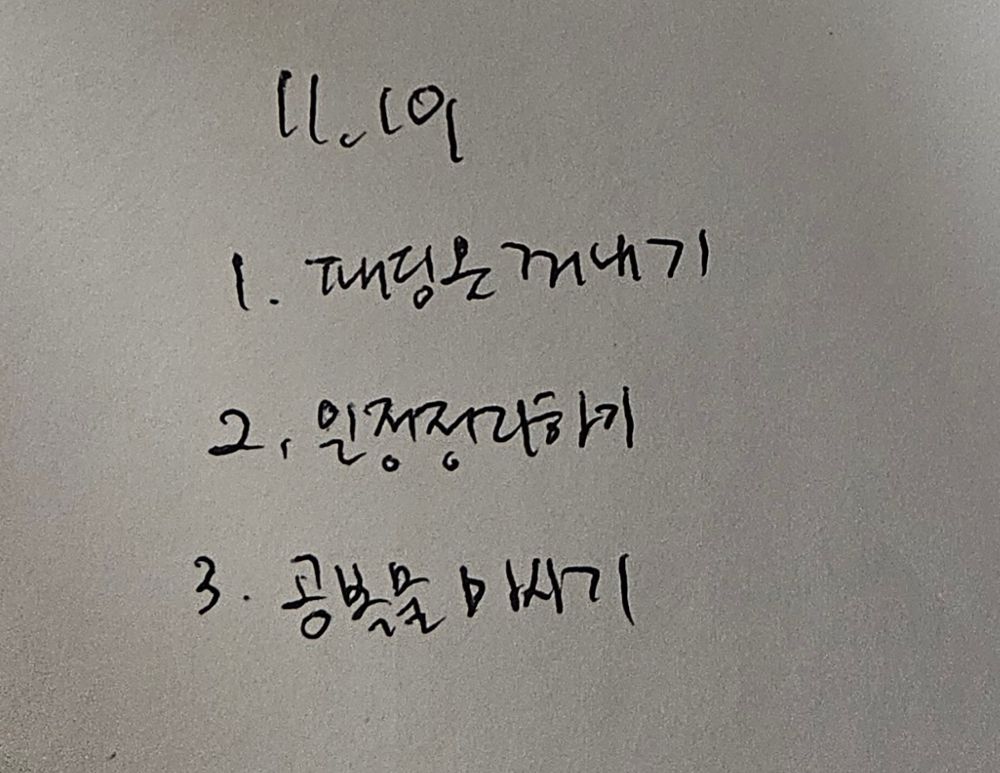 11.19
1. 패딩옷 꺼내기
2. 일정정리하기
3. 공복물 마시기